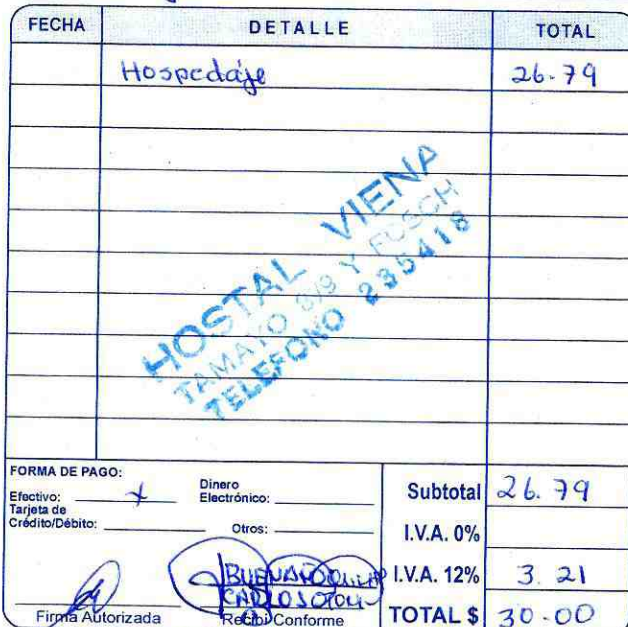 FECHA DETALLE TOTAL
Hospedaje 26.79
HOSTAL VIENA
TAMAYO S/9 Y FOSCH
TELEFONO 235418
FORMA DE PAGO:
Efectivo: x Dinero Electrónico:
Tarjeta de Crédito/Débito: Otros:
Subtotal 26.79
I.V.A. 0%
I.V.A. 12% 3.21
TOTAL $ 30.00
Firma Autorizada Recibí Conforme